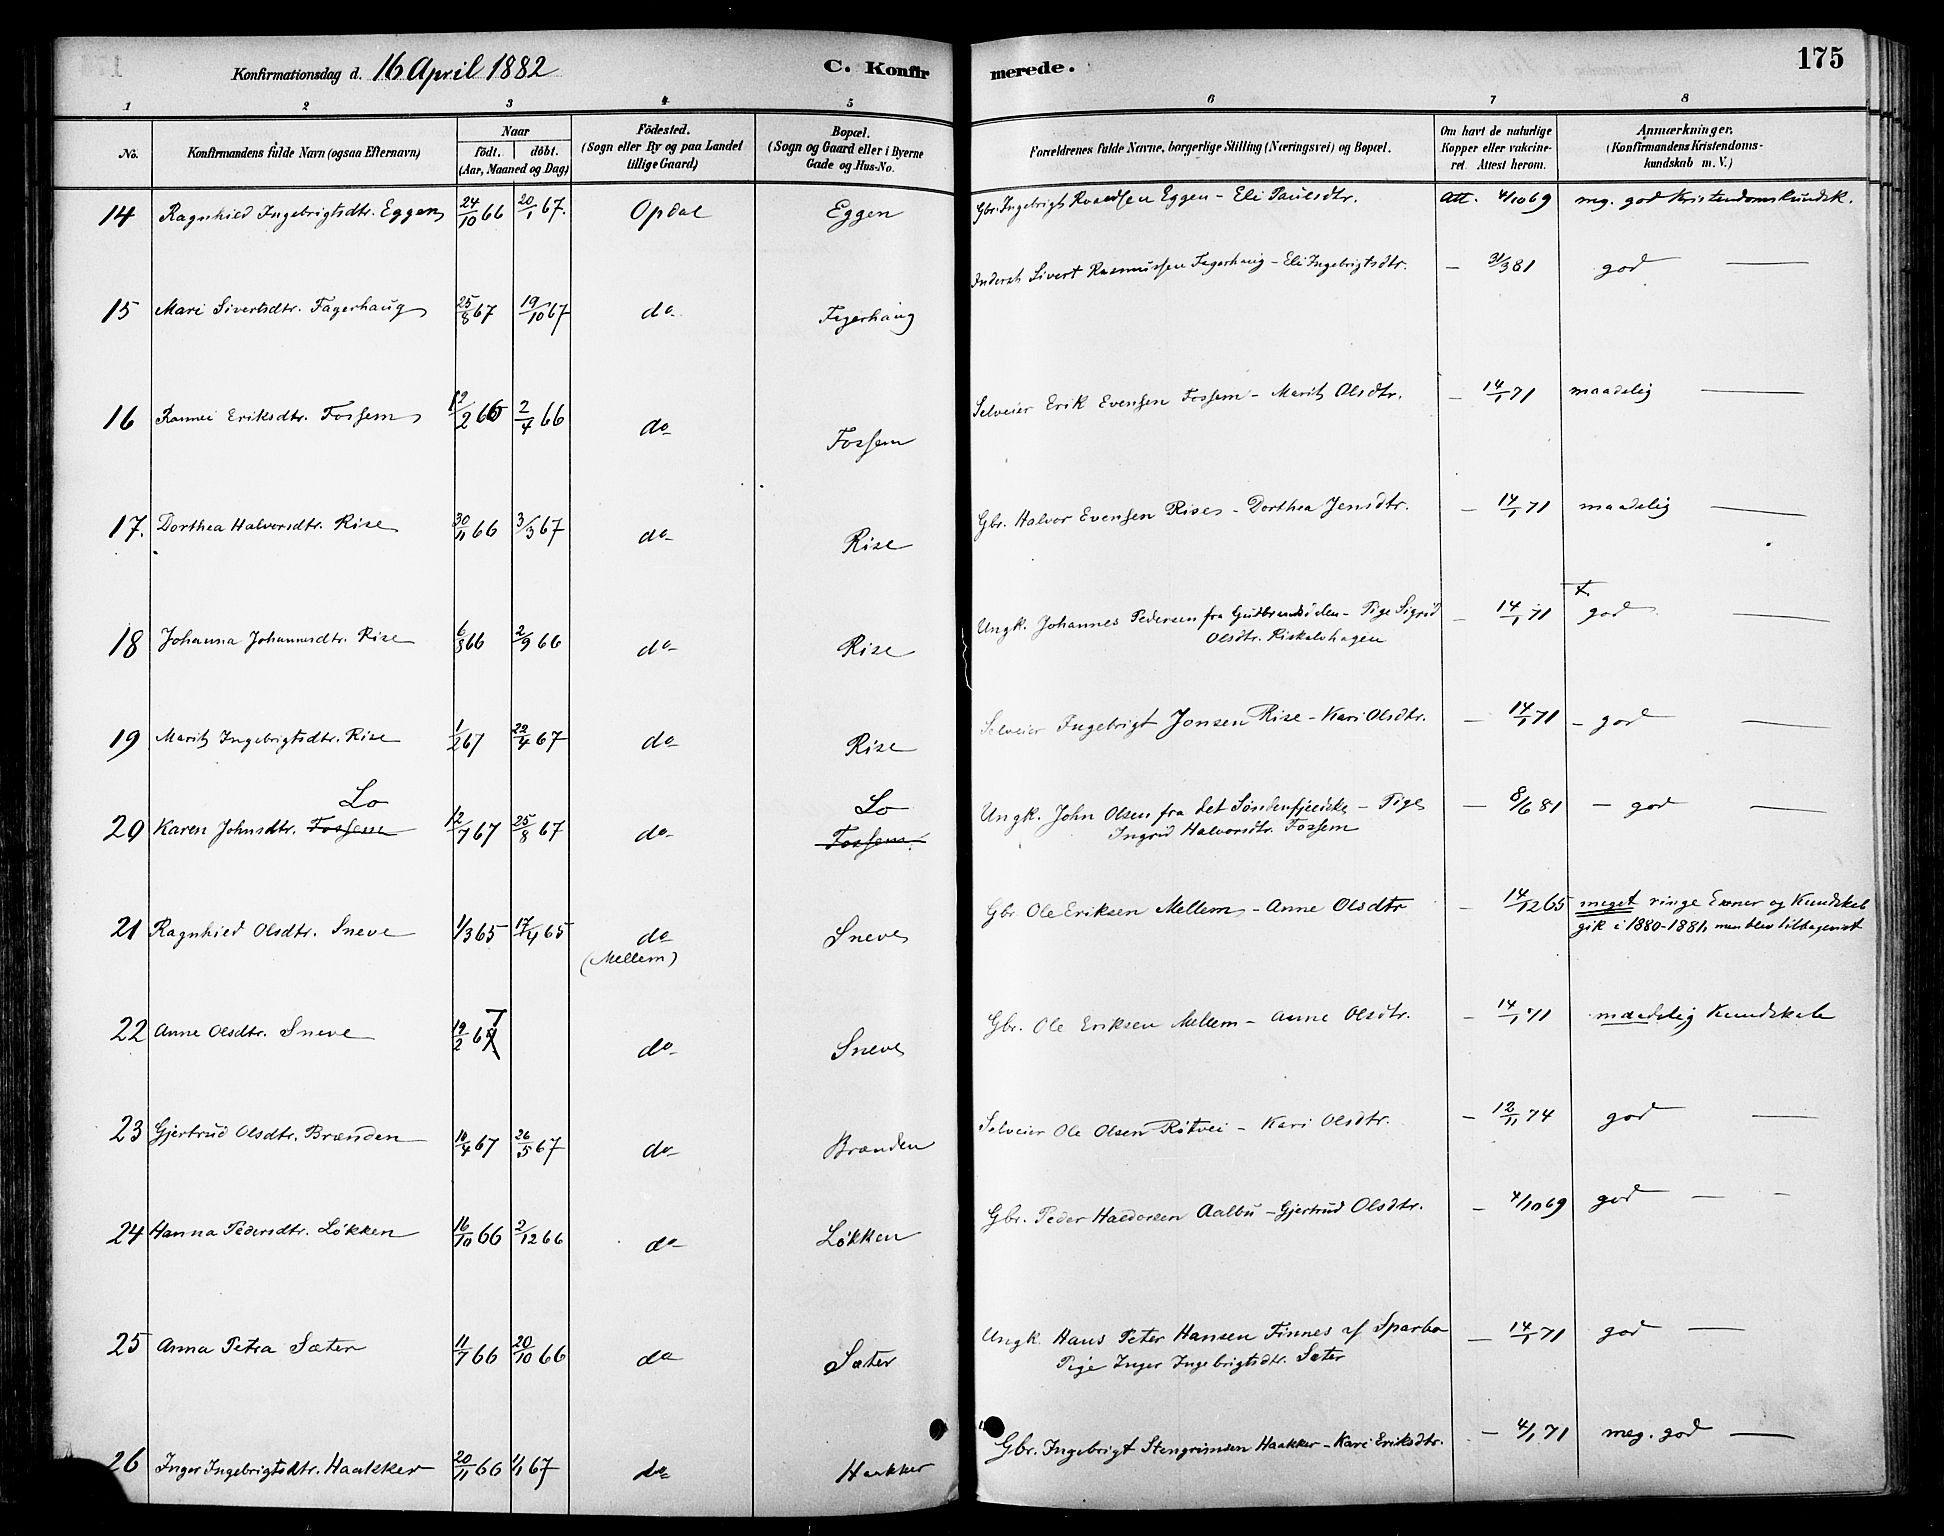 Konfirmationsdag d. 16 April 1882 C. Konfirmerede. 175
1 2 3 4 5 6 7 8
No. Konfirmandens fulde Navn (ogsaa Efternavn) Naar födt. döbt. (Aar, Maaned og Dag) Födested. (Sogn eller By og paa Landet tillige Gaard) Bopæl. (Sogn og Gaard eller i Byerne Gade og Hus-No. Forældrenes fulde Navne, borgerlige Stilling (Næringsvei) og Bopæl. Om havt de naturlige Kopper eller vakcineret. Attest herom. Anmærkninger. (Konfirmandens Kristendomskundskab m. V.)
14 Ragnhild Ingebrigtsdtr. Eggen 24/10 66 20/1 67. Opdal Eggen Gbr. Ingebrigt Eggen - Eli Paulsdtr. Att. 4/10 69 meg. god Kristendomskundsk.
15 Mari Sivertsdtr. Fagerhaug 25/8 67 19/10 67 do Fagerhaug Inderst Sivert Rasmussen Fagerhaug - Eli Ingebrigtsdtr. — 31/3 81 god —
16 Ramei Eriksdtr. Fossem 12/2 66 2/4 66 do Fossem Selveier Erik Evensen Fossem - Marit Olsdtr. — 14/1 71 maadelig —
17. Dorthea Halvorsdtr. Rise 30/11 66 3/3 67 do Rise Gbr. Halvor Evensen Rise - Dorthea Jensdtr. — 14/1 71 maadelig —
18 Johanna Johannesdtr. Rise 6/8 66 2/9 66 do Rise Ungk. Johannes Pedersen fra Gudbrandsdalen - Pige Sigrid — 14/1 71 god —
Olsdtr. Riskaløshagen
19 Marit Ingebrigtsdtr. Rise 1/2 67 22/4 67 do Rise Selveier Ingebrigt Jonsen Rise - Kari Olsdtr. — 14/1 71 - god —
Lo Lo
20 Karen Johnsdtr. Fossem 12/7 67 25/8 67 do Fossem. Ungk. John Olsen fra det Søndenfjeldske - Pige — 8/6 81 - god —
Ingrid Halvorsdtr. Fossem
21 Ragnhild Olsdtr. Sneve 1/3 65 17/4 65 do Sneve Gbr. Ole Eriksen Mellem - Anne Olsdtr — 14/12 65 meget ringe Evner og Kundskab
(Mellem) gik i 1880-1881, men blev tilbagevist
22 Anne Olsdtr. Sneve 19/2 67 do Sneve Gbr. Ole Eriksen Mellem - Anne Olsdtr. — 14/1 71 maadelig Kundskab
23 Gjertrud Olsdtr. Brænden 16/4 67 26/5 67 do Brænden Selveier Ole Olsen Røtvei - Kari Olsdtr. — 12/11 74 god —
24 Hanna Pedersdtr. Løkken 16/10 66 2/12 66 do Løkken Gbr. Peder Haldorsen Aalbu - Gjertrud Olsdtr. — 4/10 69 god — -
25 Anna Petra Sæter 11/7 66 20/10 66 do Sæter Ungk. Hans Peter Hansen Finnes af Sparbo — 14/1 71 god —
Pige Inger Ingebrigtsdtr. Sæter
26 Inger Ingebrigtsdtr. Haakker 20/11 66 1/1 67 do Haakker Gbr. Ingebrigt Stengrimsen Haakker - Kari Eriksdtr. — 4/1 71 meg. god —